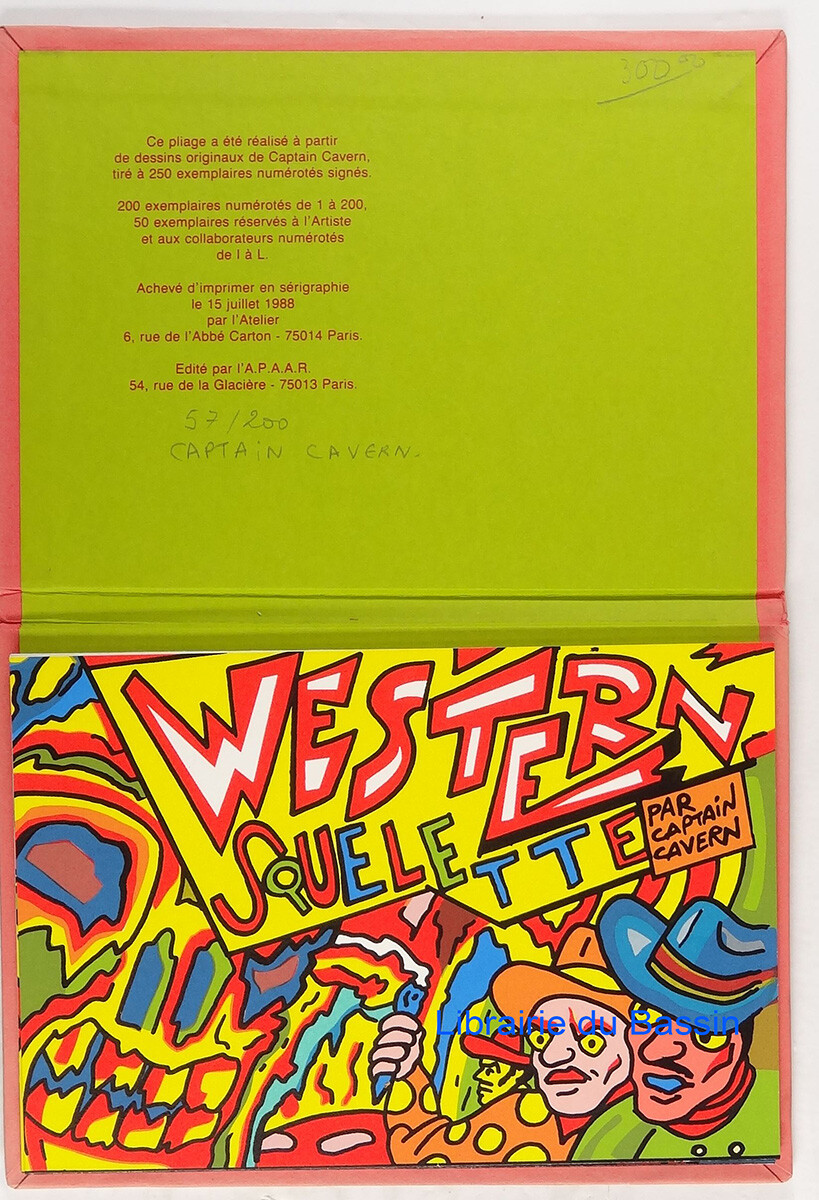 300,00
Ce pliage a été réalisé à partir
de dessins originaux de Captain Cavern,
tiré à 250 exemplaires numérotés signés.
200 exemplaires numérotés de 1 à 200,
50 exemplaires réservés à l'Artiste
et aux collaborateurs numérotés
de I à L.
Achevé d'imprimer en sérigraphie
le 15 juillet 1988
par l'Atelier
6, rue de l'Abbé Carton - 75014 Paris.
Edité par l'A.P.A.A.R.
54, rue de la Glacière - 75013 Paris.
57/200
CAPTAIN CAVERN.
WESTERN
SQUELETTE
PAR
CAPTAIN
CAVERN
Librairie du Bassin